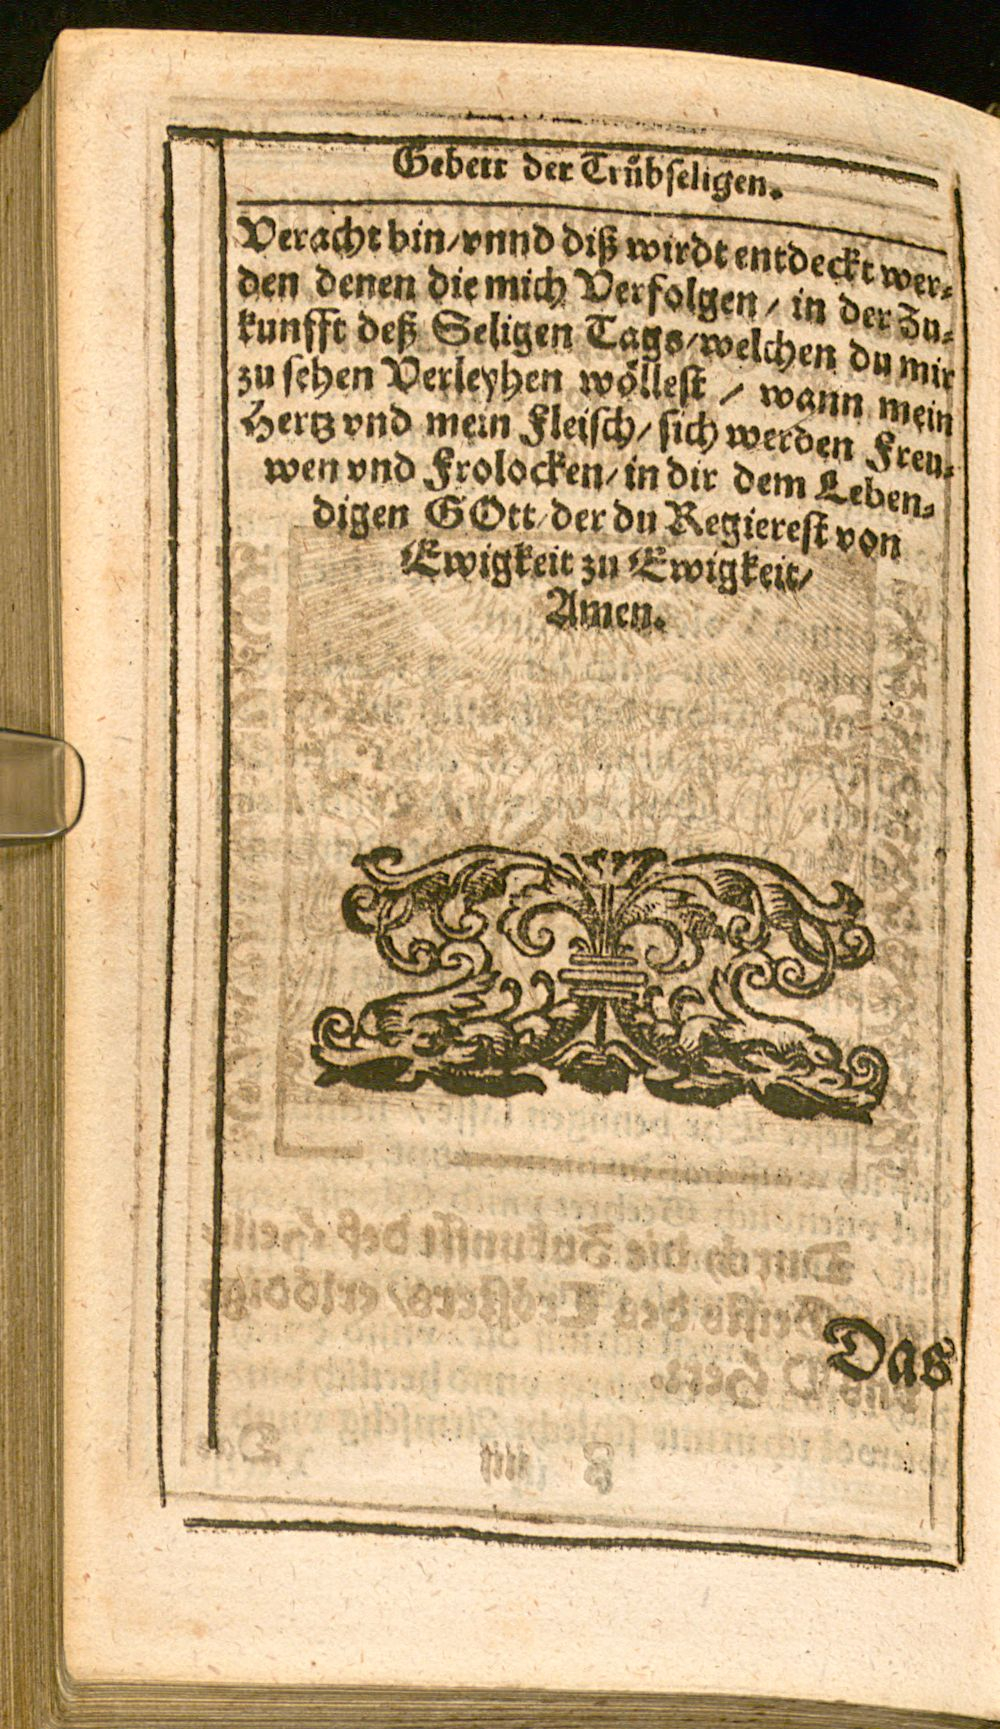 Gebett der Trübseligen.
Veracht bin/vnnd diß wirdt entdeckt wer-
den denen die mich Verfolgen / in der Zu-
kunfft deß Seligen Tags/welchen du mir
zu sehen Verleyhen wöllest / wann mein
Hertz vnd mein Fleisch/sich werden Freu-
wen vnd Frolocken/in dir dem Leben-
digen GOtt/der du Regierest von
Ewigkeit zu Ewigkeit/
Amen.
Das